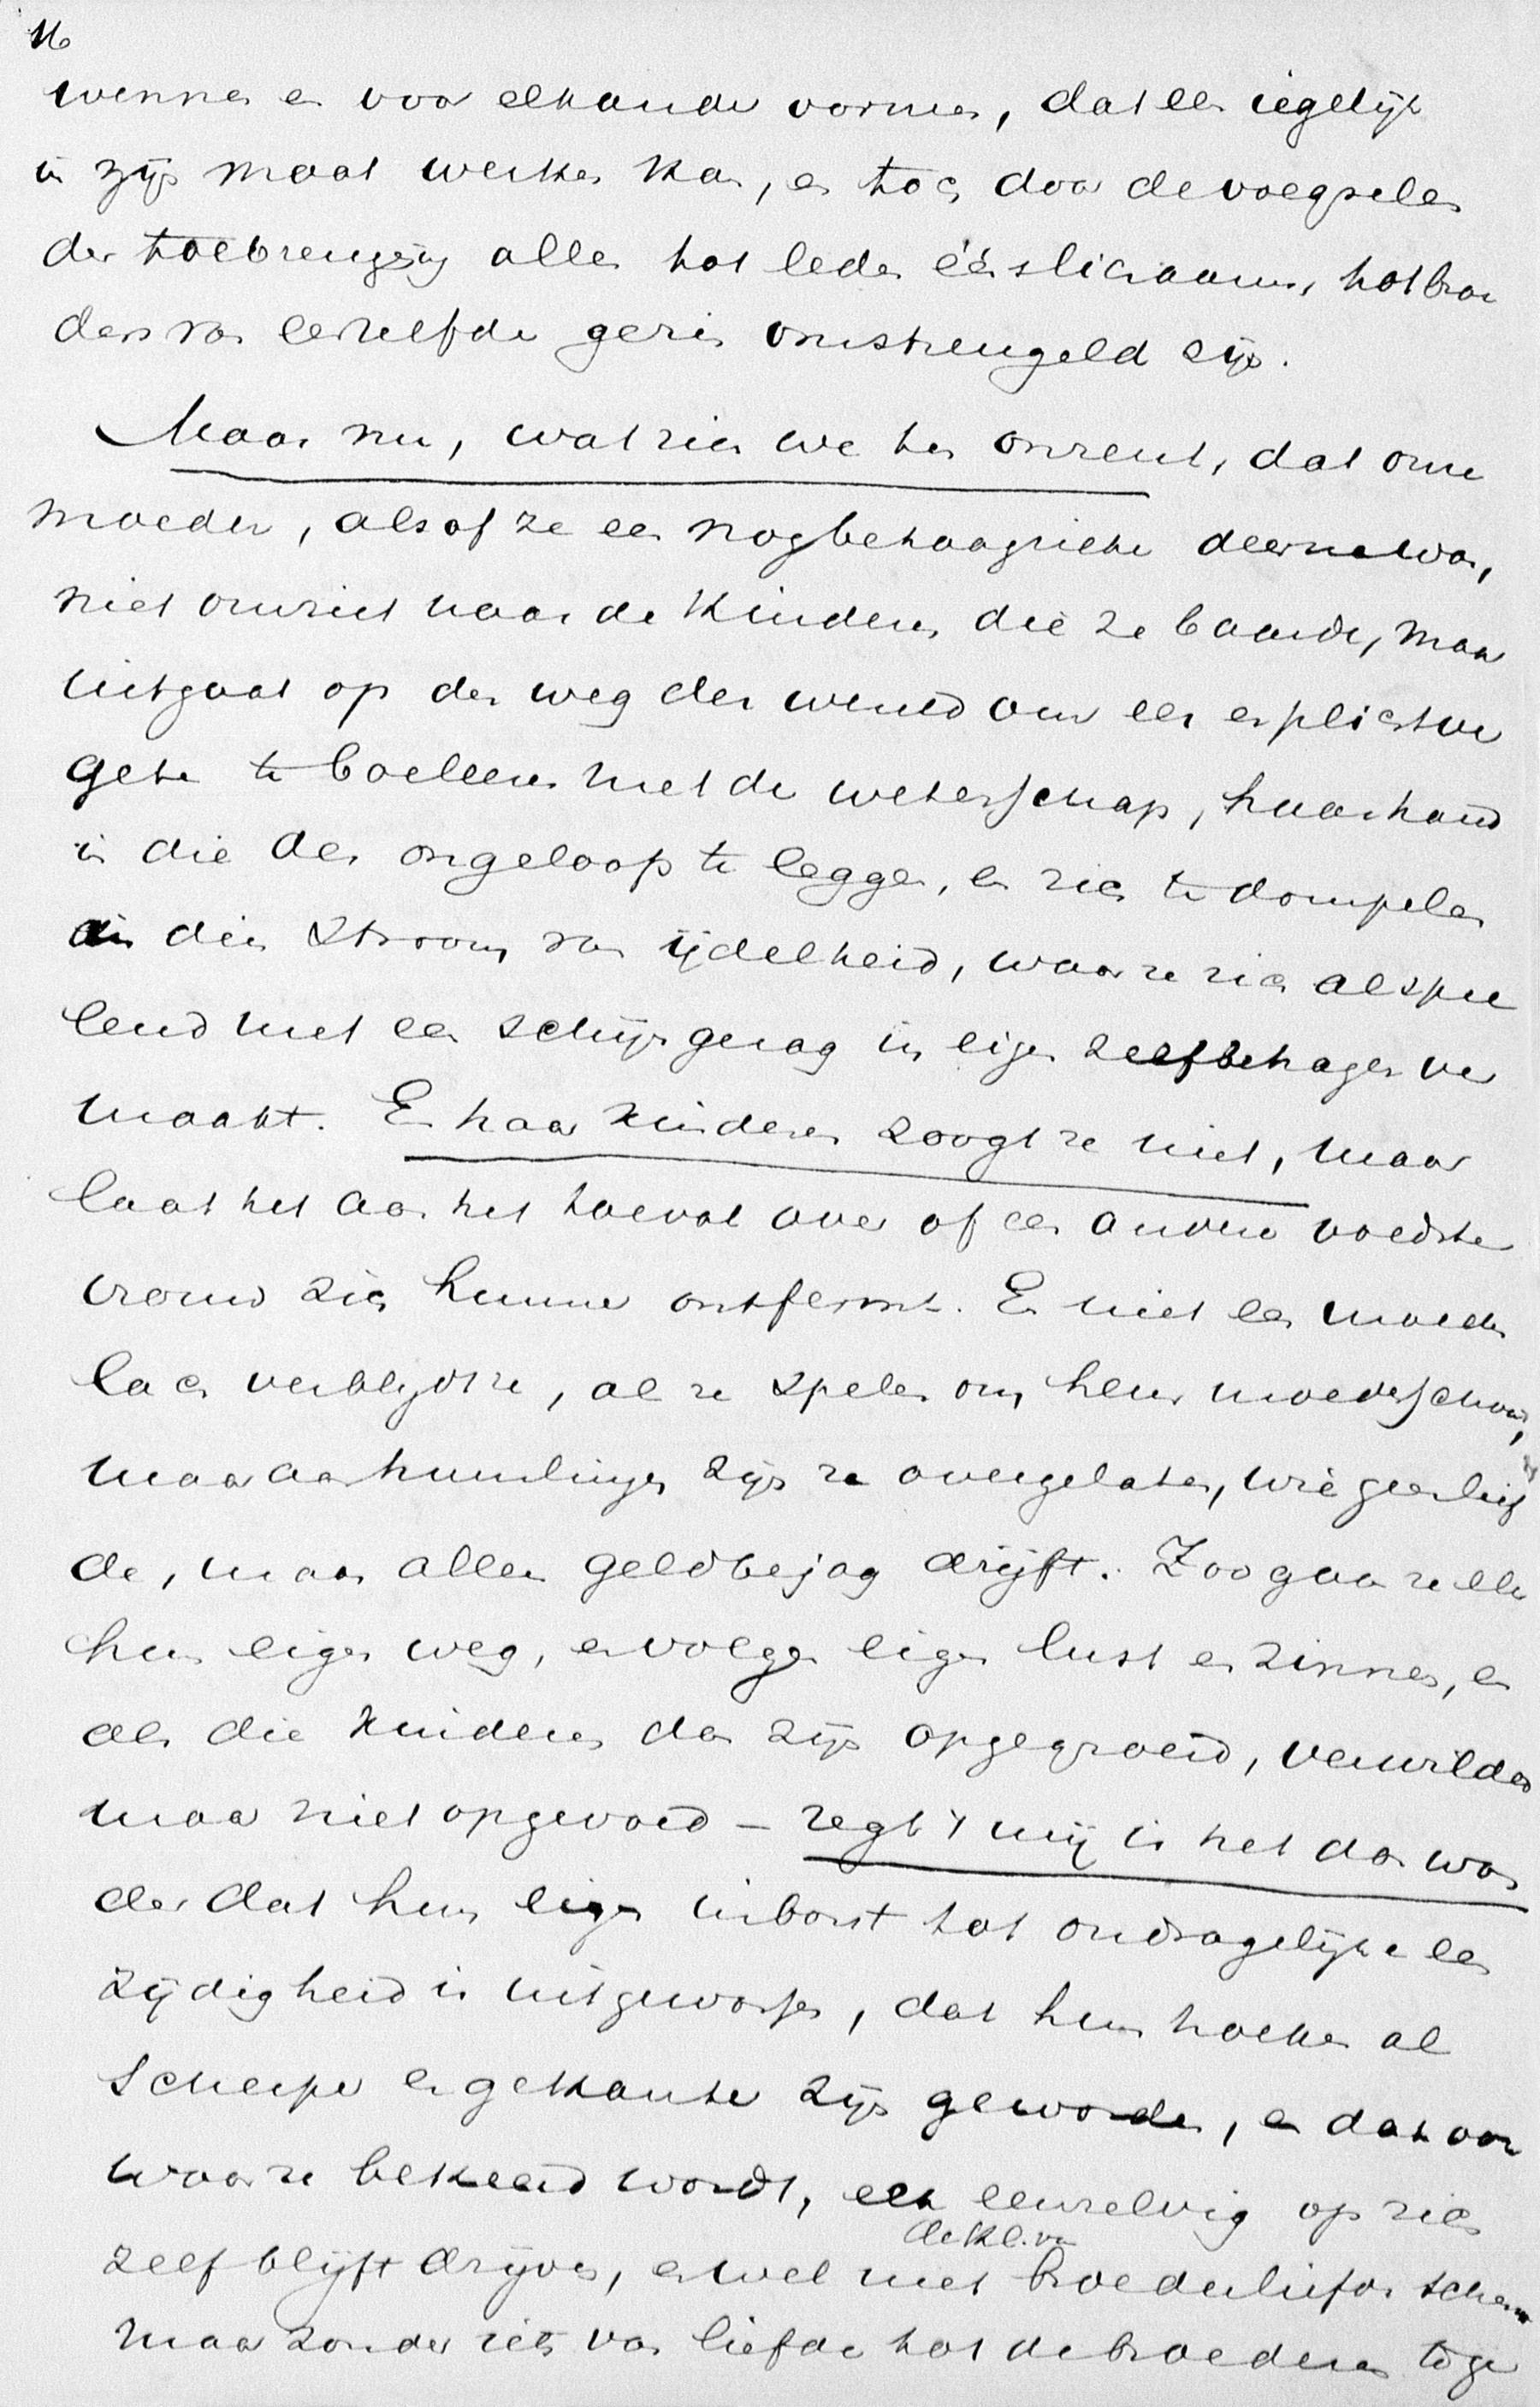 16
wennen en voor elkander vormen, dat een iegelijk
in zijn maat werken kan, en toch door de voegselen
der toebrenging allen tot leden ééns lichaams, tot broe
ders van eenzelfde gezin omstrengeld zijn.
Maar nu, wat zien we ten onzent, dat onze
moeder, alsof ze een nog behaagzieke deerne was,
niet omziet naar de kinderen die ze baarde, maar
uitgaat op den weg der wereld om een en plichtver
geten te boeleeren met de wetenschap, haar hand
in die des ongeloofs te leggen, en zich te dompelen
in dien stroom van ijdelheid, waar ze zich al spe
lend met een schijngezag in eigen zelfbehagen ver
maakt. En haar kinderen zoogt ze niet, maar
laat het aan het toeval over of een andere voedster
vrouw zich hunner ontfermt. En niet een moeder
lach verblijdt ze, al ze spelen om heur moederschoot,
maar aan huurlingen zijn ze overgelaten, wie geen lief
de, maar alleen geldbejag drijft. Zoo gaan ze elk
hun eigen weg, en volgen eigen lust en zinnen, en
als die kinderen dan zijn opgegroeid, verwilderd
maar niet opgevoed – zegt 't mij is het dan won
der dat hun eigen inborst tot ondragelijke een
zijdigheid is uitgeworpen, dat hun hoeken al
scherper en gekanter zijn geworden, en dat voor
waar ze bekeerd wordt, elk eenzelvig op zich
de kl. van
zelf blijft drijven, en wel met broederliefde scherm
maar zonder iets van liefde tot de broederen toge